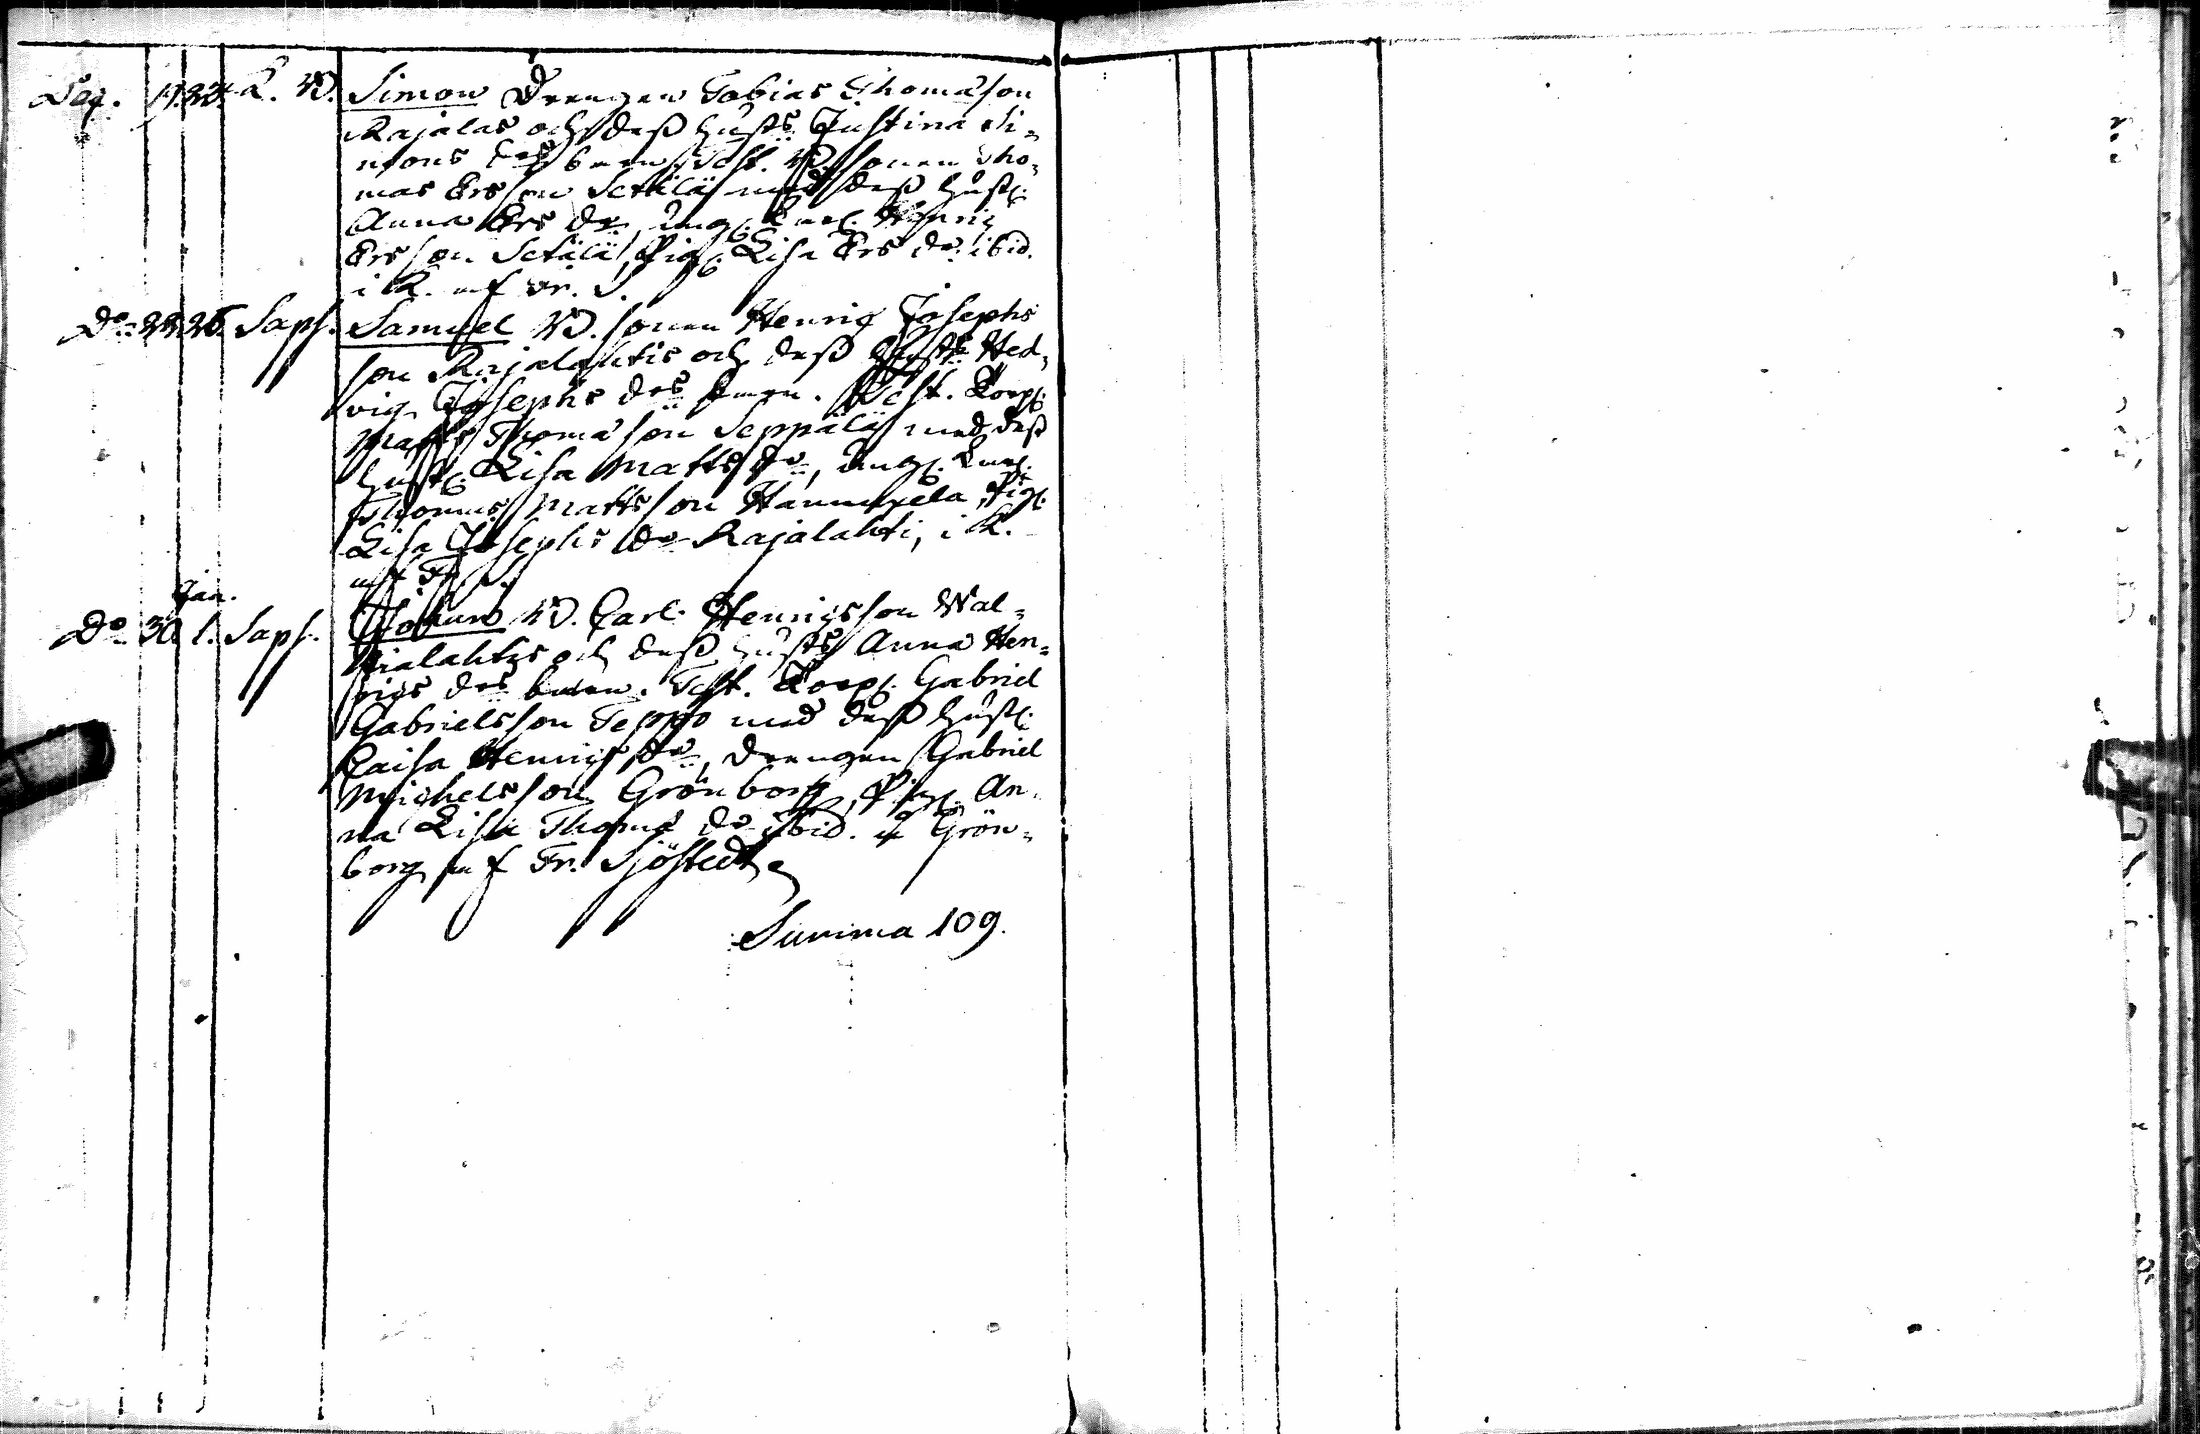 Dec. 17. 24. L. W. Simon Drengen Tobias Thomason
Rajalas och dess hust:s Justina Si=
mons d:rs barn. Test. W. sonen Tho=
mas Ersson Setälä med dess hust.
Anna Ers d:r, ung. Henric
Ersson Setälä, Pig. Lisa Ers d:r ibid.
i K. af Fr. S.
D:o 22. 26. Laps. Samuel W. sonen Henric Josephs
son Rajalahtis och dess hust:s Hed=
vig Josephs d:rs barn. Test. Corp.
Matts Thomason Seppälä med dess
hust. Lisa Matts d:r, ung.
Thomas Mattsson Hannuxela, Pig.
Lisa Josephs d:r Rajalahti, i K.
af Fr. S.
Jan.
D:o 30 1. Laps. Johan W. Carl Henricsson Wal=
kialahtis och dess hust:s Anna Hen=
rics d:rs barn. Test. Corp. Gabriel
Gabrielsson Teppo med dess hust.
Caisa Henrics d:r, Drengen Gabriel
Michelsson Grönborg, Pig. An=
na Lisa Thoma d:r ibid. i Grön=
borg af Fr. Sjöstedt
Summa 109.